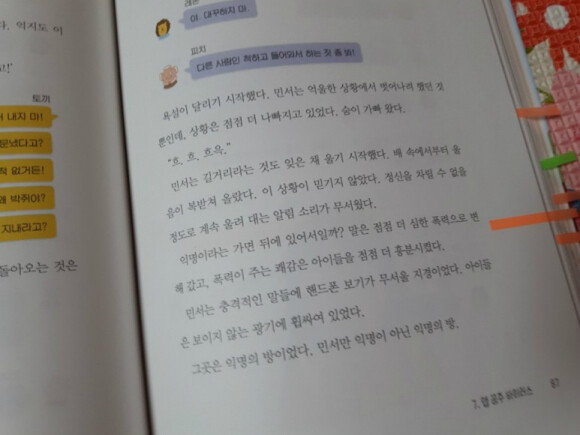 다. 억지도 이
고!'
토끼
내지 마!
문냈다고?
적 없거든!
왜 박쥐야?
지내라고?
돌아오는 것은
레몬
야. 대꾸하지 마.
피치
다른 사람인 척하고 들어와서 하는 짓 좀 봐!
욕설이 달리기 시작했다. 민서는 억울한 상황에서 벗어나려 했던 것
뿐인데, 상황은 점점 더 나빠지고 있었다. 숨이 가빠 왔다.
"흐, 흐, 흐윽."
민서는 길거리라는 것도 잊은 채 울기 시작했다. 배 속에서부터 울
음이 복받쳐 올랐다. 이 상황이 믿기지 않았다. 정신을 차릴 수 없을
정도로 계속 울려 대는 알림 소리가 무서웠다.
익명이라는 가면 뒤에 있어서일까? 말은 점점 더 심한 폭력으로 변
해 갔고, 폭력이 주는 쾌감은 아이들을 점점 더 흥분시켰다.
민서는 충격적인 말들에 핸드폰 보기가 무서울 지경이었다. 아이들
은 보이지 않는 광기에 휩싸여 있었다.
그곳은 익명의 방이었다. 민서만 익명이 아닌 익명의 방.
7. 앱 공주 바이러스 67